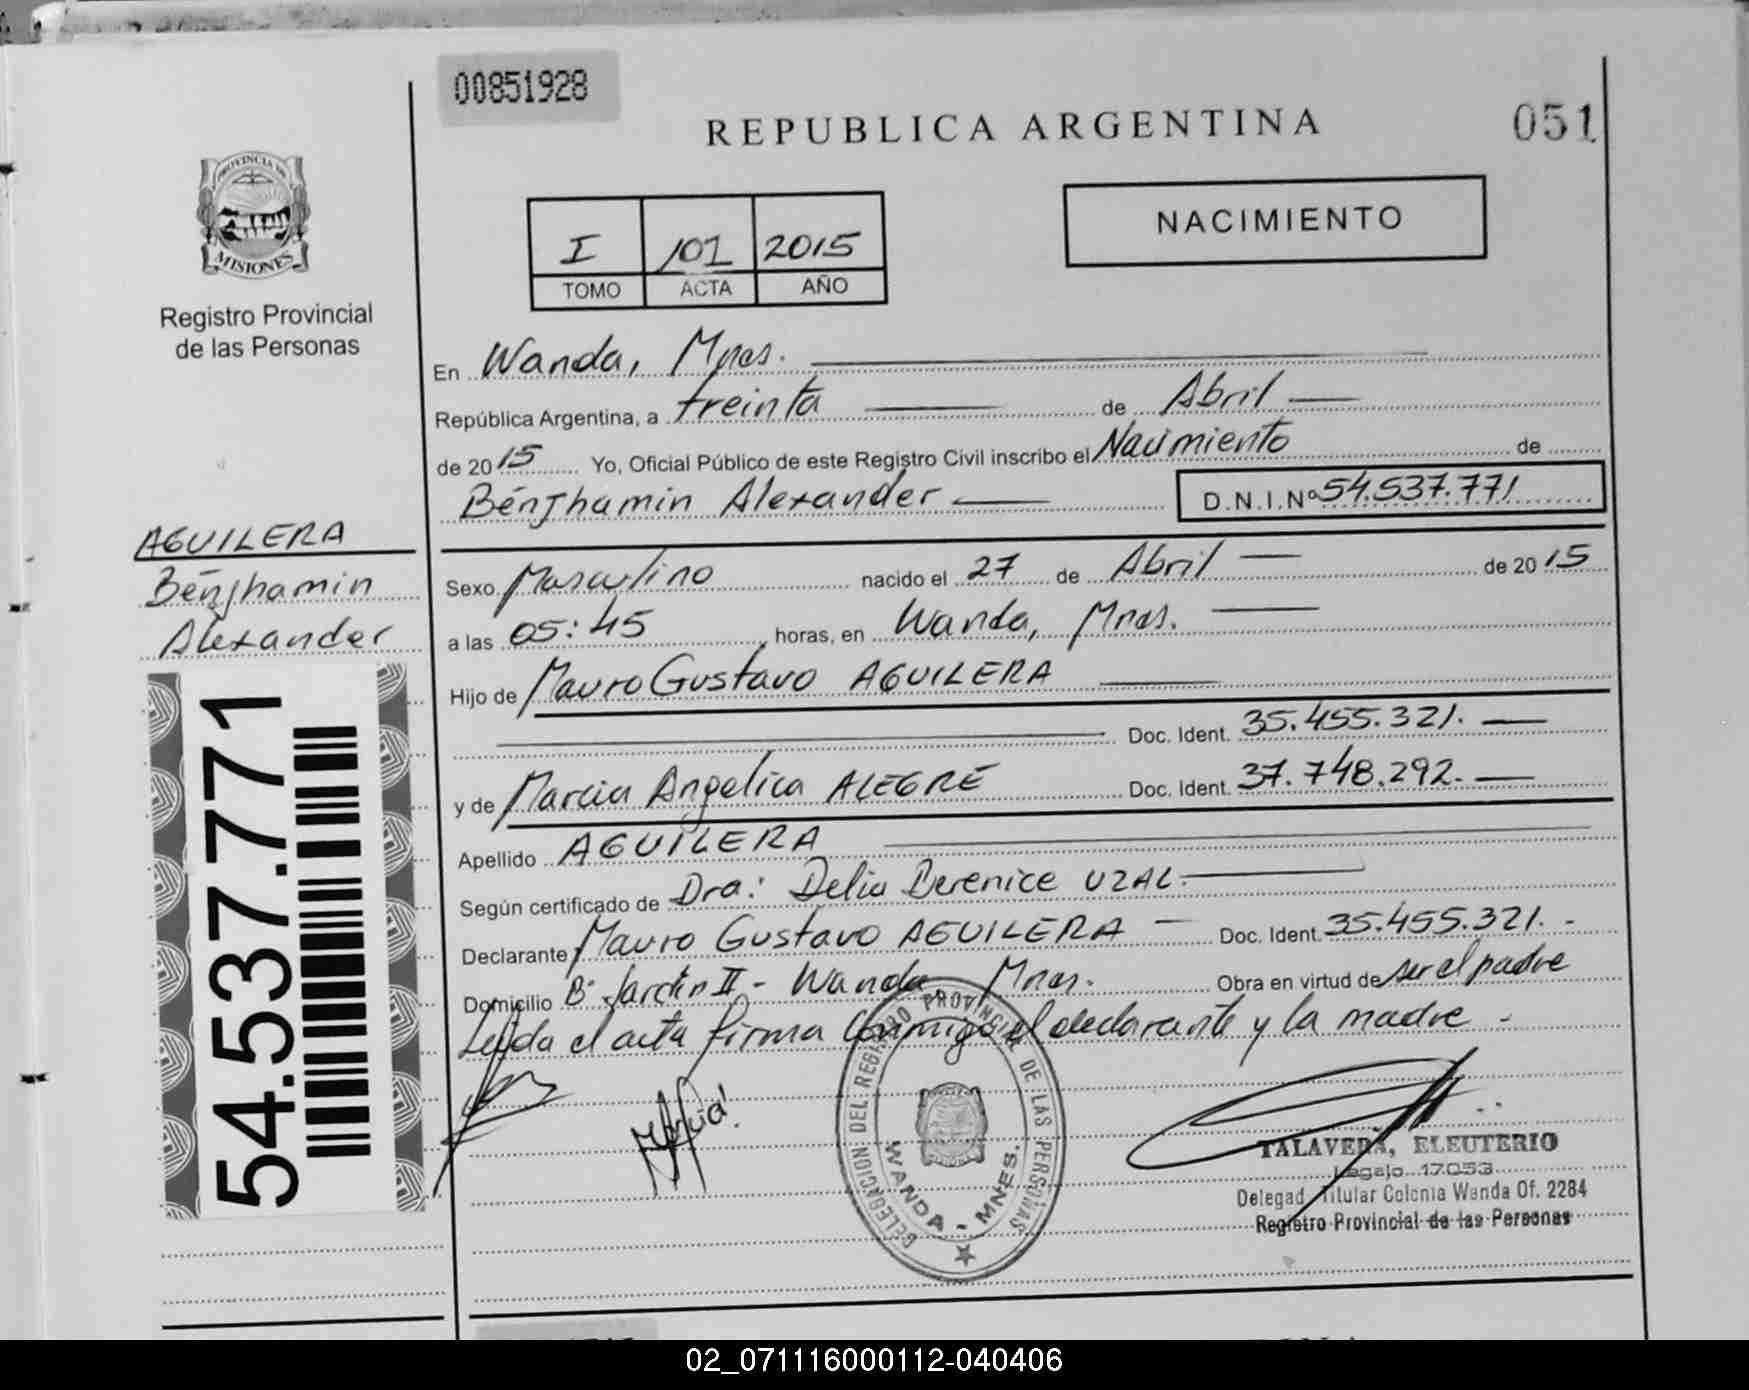 00851928
REPUBLICA ARGENTINA
051
PROVINCIA DE
MISIONES
Registro Provincial
de las Personas
I 101 2015
TOMO ACTA AÑO
NACIMIENTO
En Wanda, Mnes.
República Argentina, a treinta de Abril
de 2015 Yo, Oficial Público de este Registro Civil inscribo el Nacimiento de
Bénjhamin Alexander D.N.I.Nº 54.537.771
AGUILERA
Bénjhamin
Alexander
54.537.771
Sexo Masculino nacido el 27 de Abril de 2015
a las 05:45 horas, en Wanda, Mnes.
Hijo de Mauro Gustavo AGUILERA
Doc. Ident. 35.455.321.
y de Marcia Angelica ALEGRE Doc. Ident. 37.748.292.
Apellido AGUILERA
Según certificado de Dra: Delia Berenice UZAL.
Declarante Mauro Gustavo AGUILERA Doc. Ident. 35.455.321.
Domicilio Bº Jardin II - Wanda Mnes. Obra en virtud de ser el padre
Leída el acta firma conmigo el declarante y la madre -
DELEGACION DEL REGISTRO PROVINCIAL DE LAS PERSONAS
WANDA - MNES.
TALAVERA, ELEUTERIO
Legajo 17053
Delegad Titular Colonia Wanda Of. 2284
Registro Provincial de las Personas
02_071116000112-040406